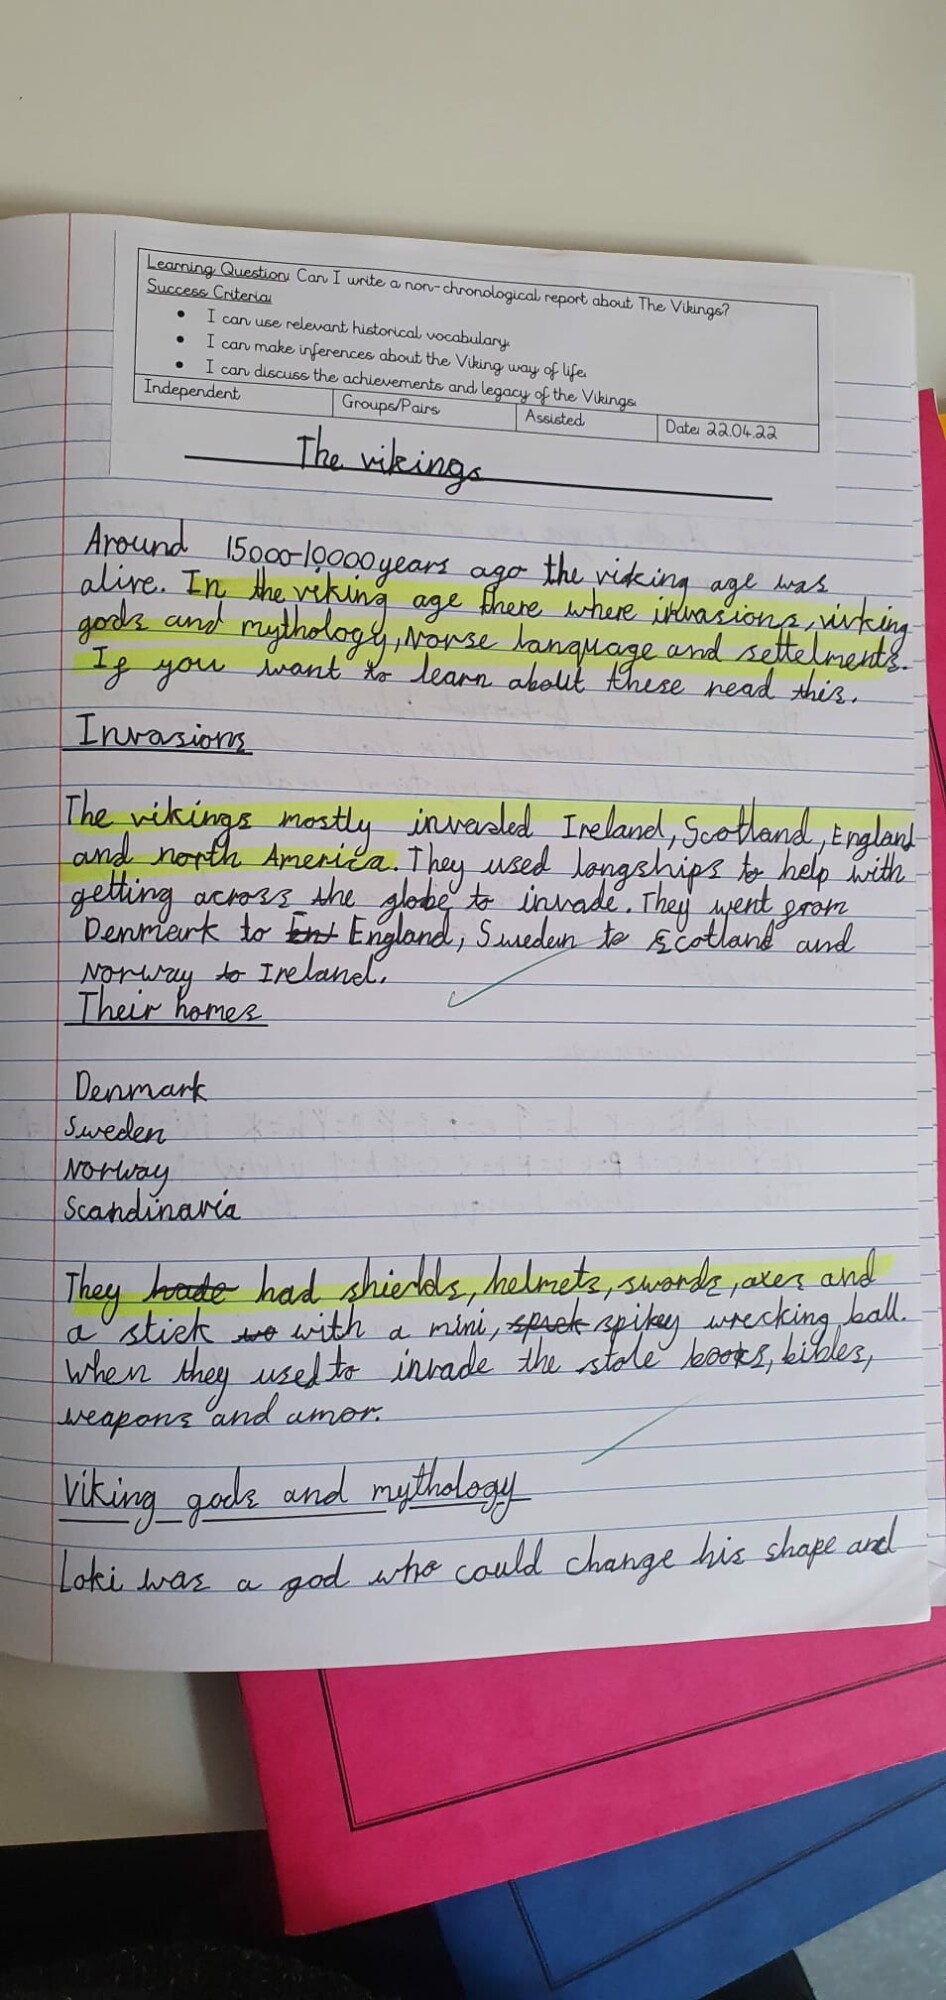 Learning Question: Can I write a non-chronological report about The Vikings?
Success Criteria:
• I can use relevant historical vocabulary.
• I can make inferences about the Viking way of life.
• I can discuss the achievements and legacy of the Vikings.
Independent Groups/Pairs Assisted Date: 22.04.22
The vikings
Around 15000-10000 years ago the vicking age was
alive. In the veking age there where invasions, virking
gods and mythology, Norse language and settelments.
If you want to learn about these read this.
Invasions
The vikings mostly invaded Ireland, Scotland, England
and north America. They used longships to help with
getting across the globe to invade. They went from
Denmark to England, Sweden to Scotland and
Norway to Ireland.
Their homes
Denmark
Sweden
Norway
Scandinavia
They hade had shields, helmets, swords, axes and
a stick wo with a mini, spickey wrecking ball.
When they used to invade the stole books, bibles,
weapons and amor.
Viking gods and mythology
Loki was a god who could change his shape and